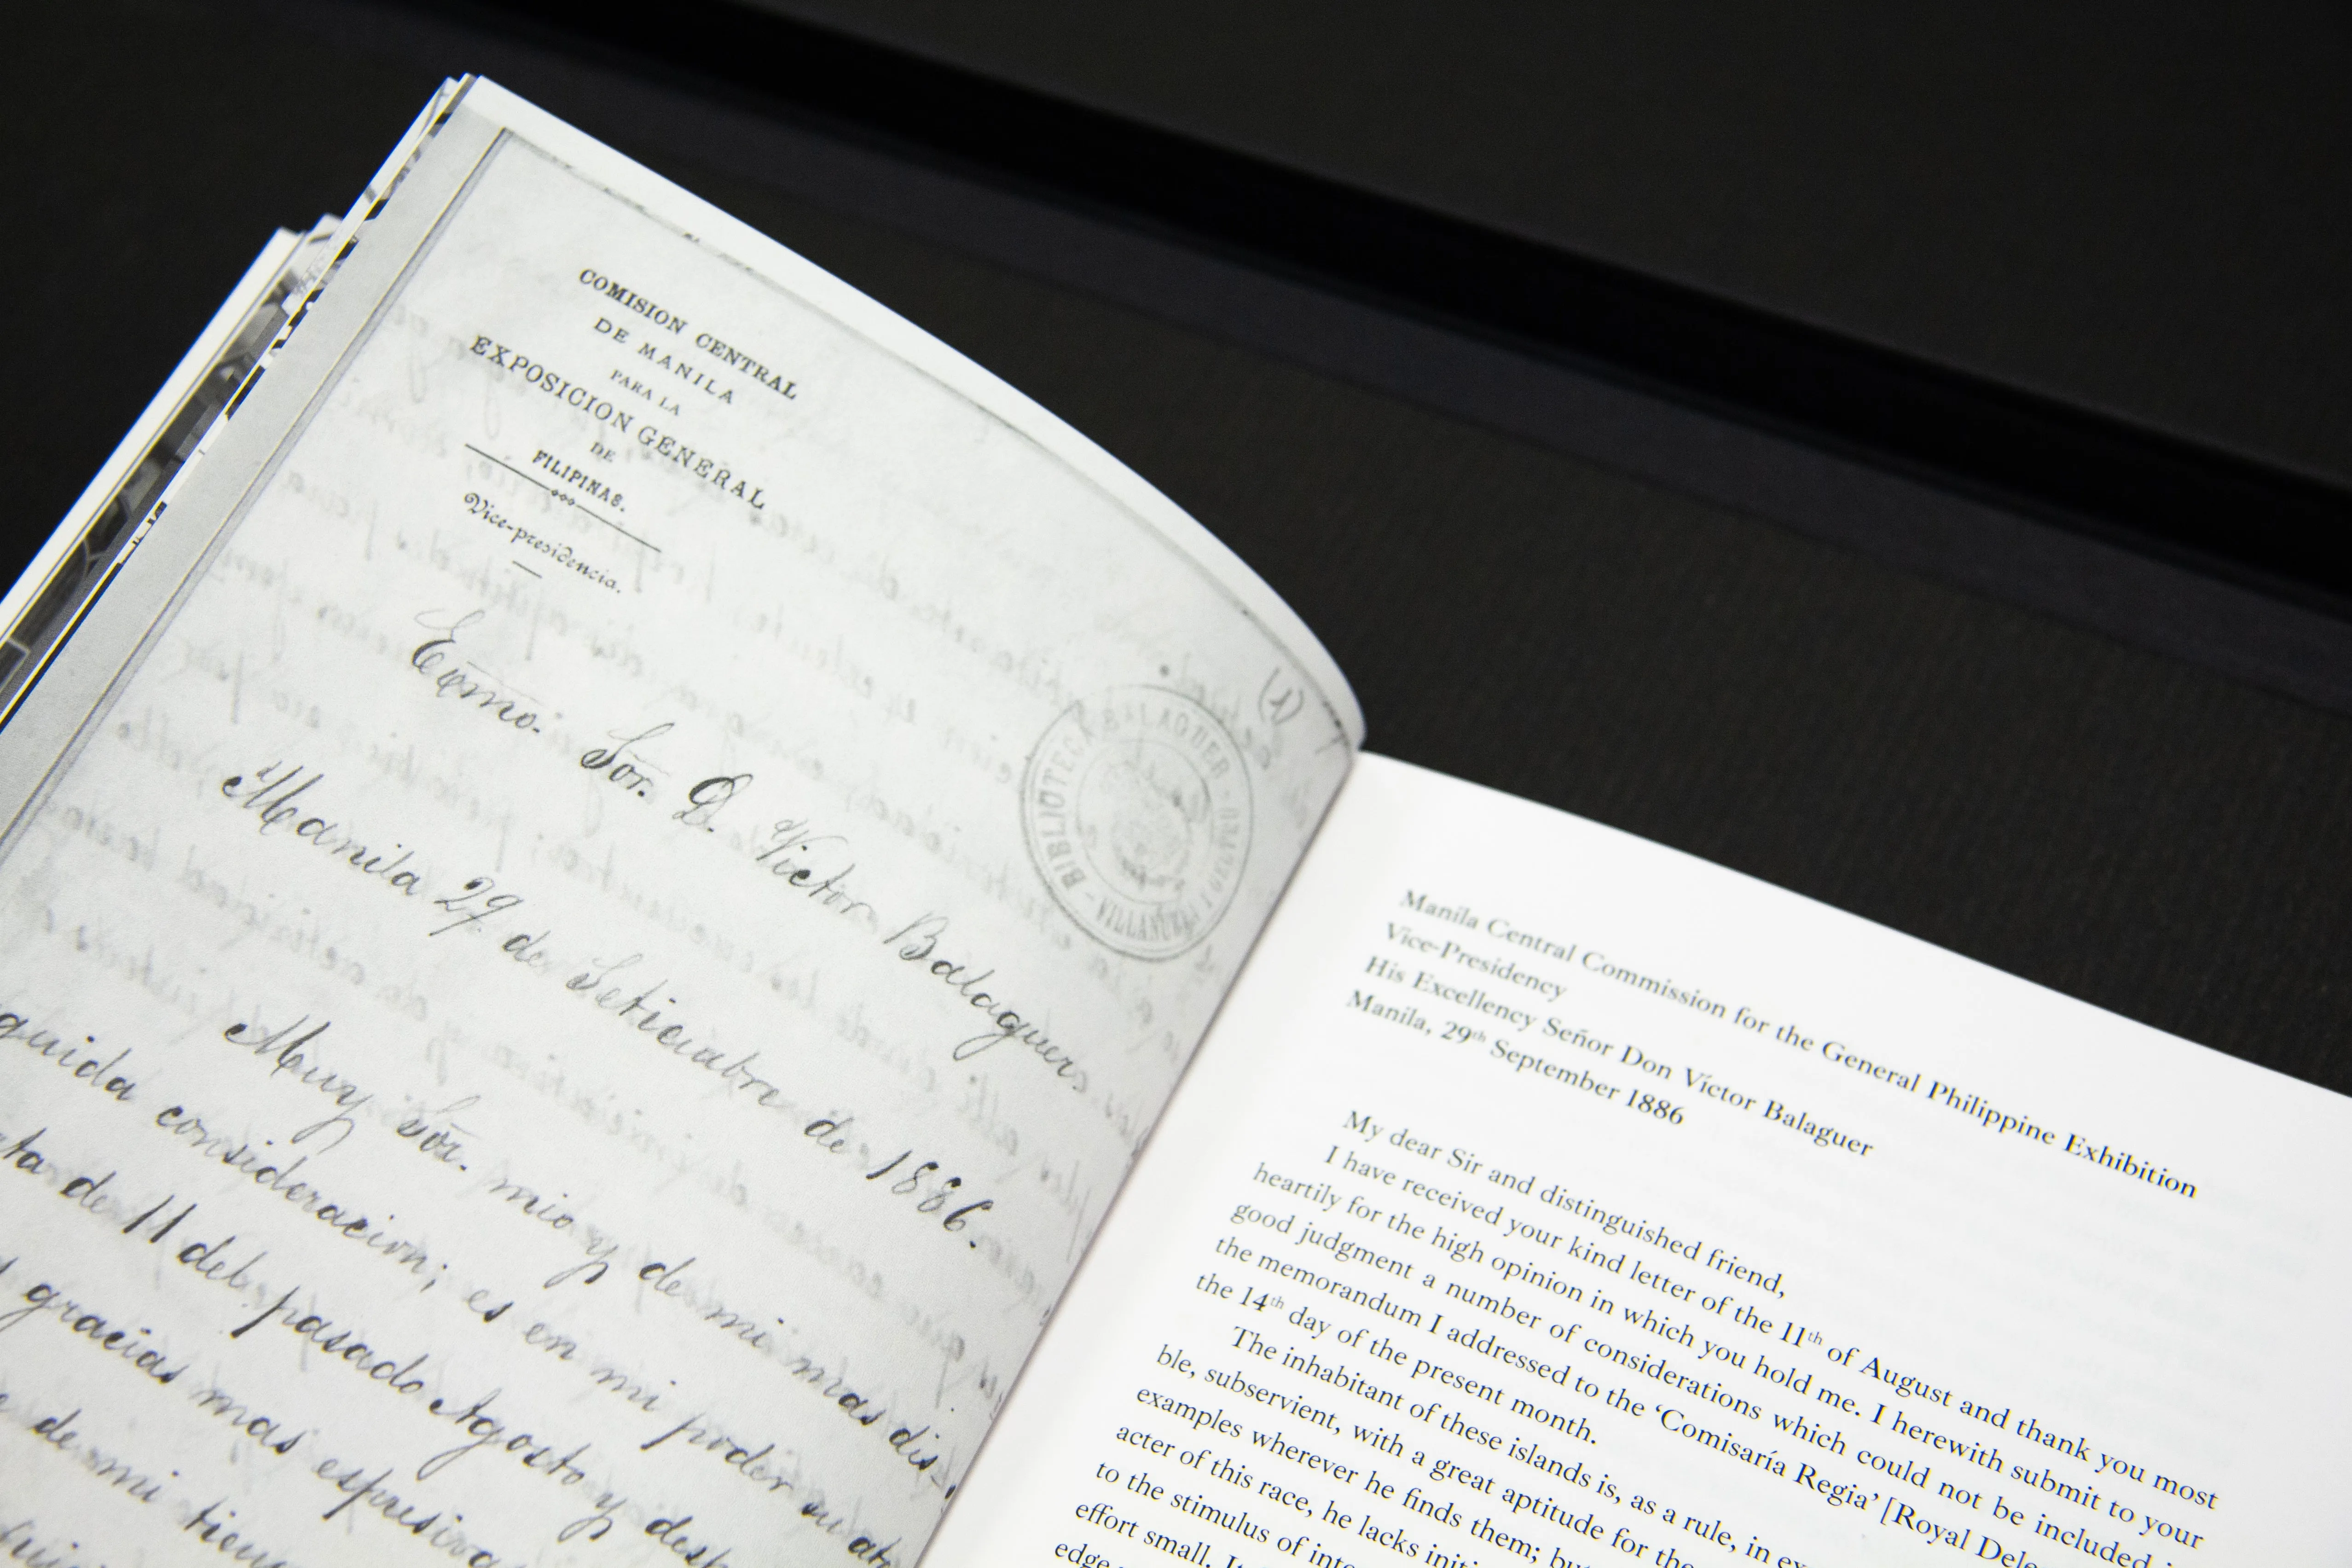 COMISION CENTRAL
DE MANILA
PARA LA
EXPOSICION GENERAL
DE
FILIPINAS.
Vice-presidencia.
(1)
BIBLIOTECA BALAGUER
Ecmo. Sor. D. Victor Balaguer.
Manila 29 de Setiembre de 1886.
Muy Sor. mio y de mi mas dis-
guida consideracion; es en mi poder su
ta de 11 del pasado Agosto y
gracias mas espresivas
de mi
Manila Central Commission for the General Philippine Exhibition
Vice-Presidency
His Excellency Señor Don Víctor Balaguer
Manila, 29th September 1886
My dear Sir and distinguished friend,
I have received your kind letter of the 11th of August and thank you most
heartily for the high opinion in which you hold me. I herewith submit to your
good judgment a number of considerations which could not be included
the memorandum I addressed to the ‘Comisaría Regia’ [Royal
the 14th day of the present month.
The inhabitant of these islands is, as a rule, in
ble, subservient, with a great aptitude for the
examples wherever he finds them;
acter of this race, he lacks
to the stimulus of
effort small.